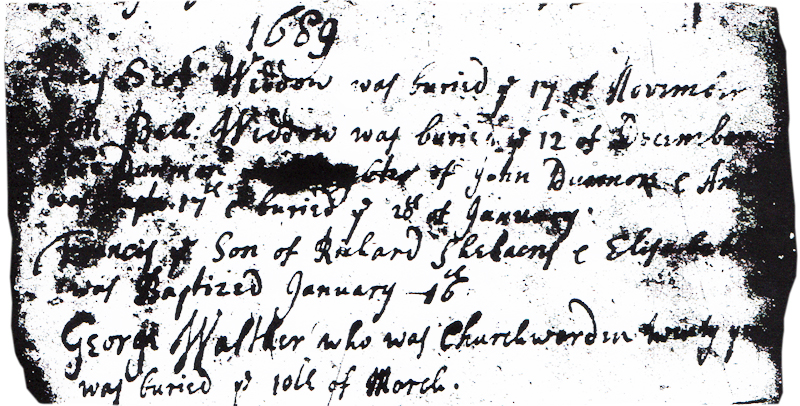 1689
Widdow was buried ye 17 of November
Bell Widdow was buried ye 12 of December
of John Dunmore & An
was 17th & buried ye 28 of January.
Francis ye Son of Richard & Elisabeth
was Baptized January 16th
George Walther who was Churchwarden twenty
was buried ye 10th of March.